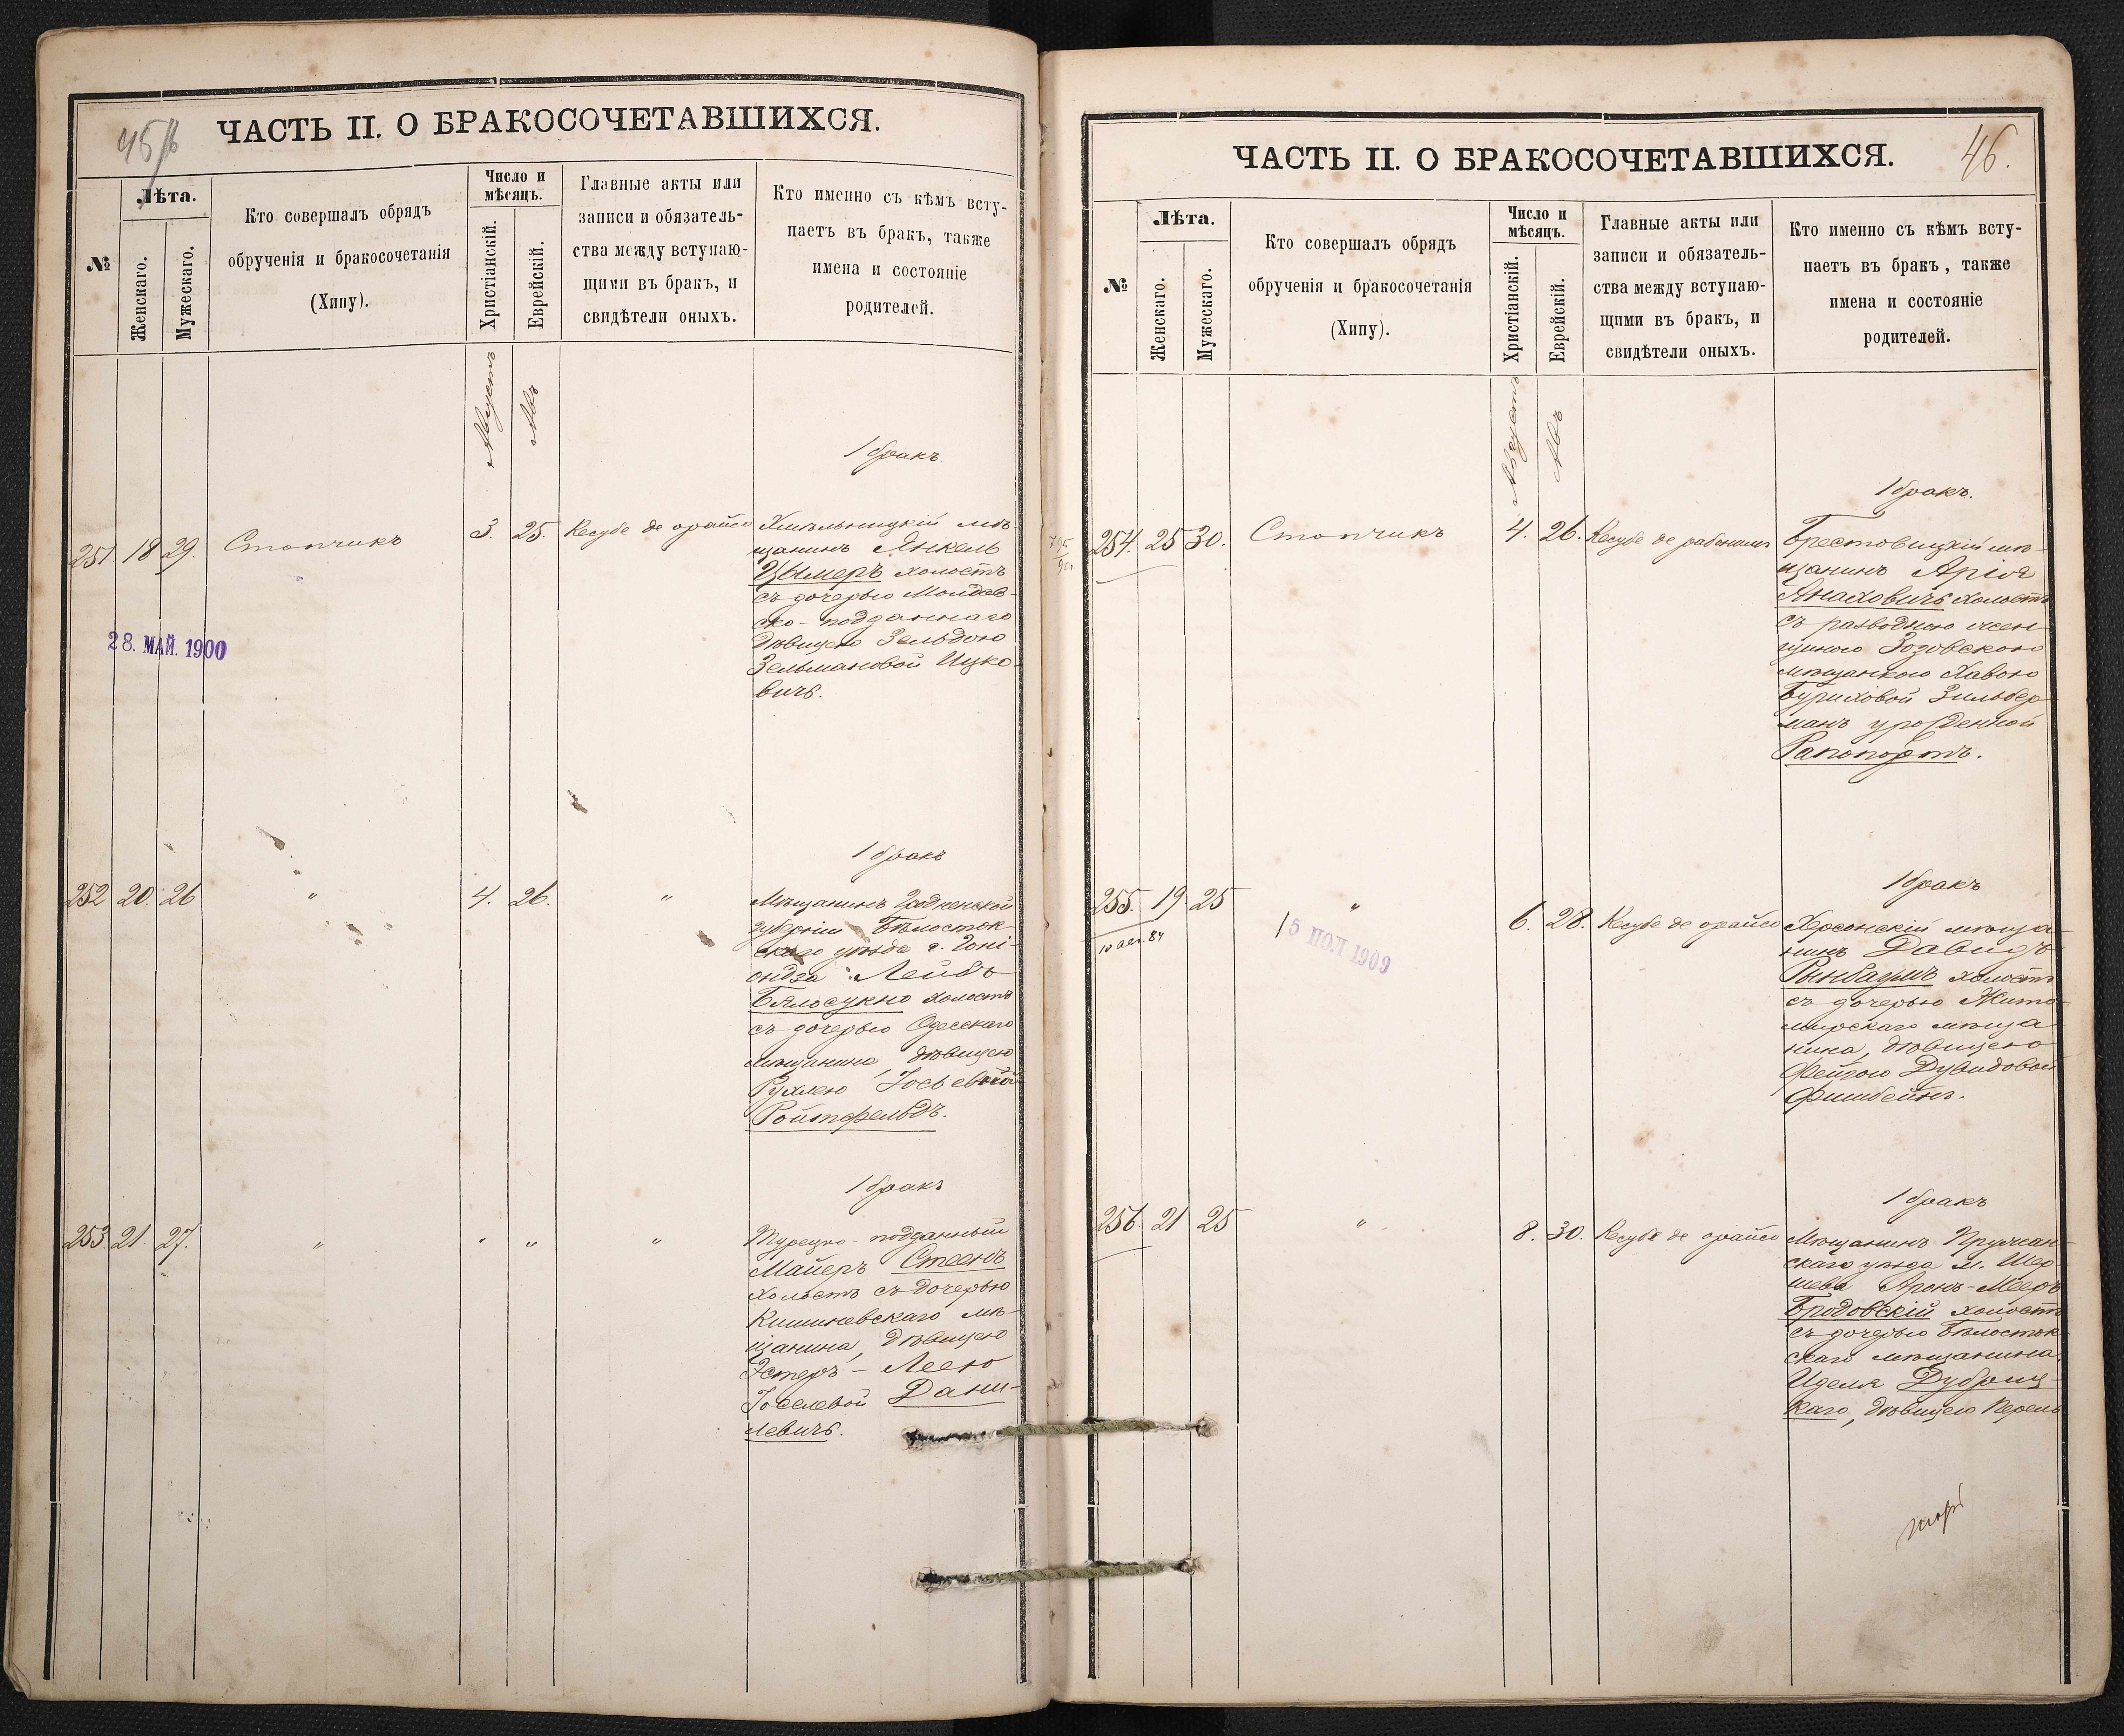 45/б
ЧАСТЬ II. О БРАКОСОЧЕТАВШИХСЯ.
№
Лѣта.
Женскаго.
Мужескаго.
Кто совершалъ обрядъ
обрученія и бракосочетанія
(Хипу).
Число и
мѣсяцъ.
Христіанскій.
Еврейскій.
Главные акты или
записи и обязатель-
ства между вступаю-
щими въ бракъ, и
свидѣтели оныхъ.
Кто именно съ кѣмъ всту-
паетъ въ бракъ, также
имена и состояніе
родителей.
Августъ
Авъ
1 бракъ
251. 18 29. Стопчикъ 3. 25. Кесубе де орайсо Хмѣльницкій мѣ-
щанинъ Янкель
Цымеръ холостъ
съ дочерью Молдав-
ско-подданнаго
дѣвицею Зельдою
Зельмановой Ицко-
вичъ.
28. МАЙ. 1900
1 бракъ
252 20. 26 " 4. 26. " Мѣщанинъ Гродненской
губерніи Бѣлосток-
скаго уѣзда г. Гоні-
ондза Лейбъ
Бялосукно холостъ
съ дочерью Одесскаго
мѣщанина, дѣвицею
Рухлею Іосьевной
Ройтфельдъ.
1 бракъ
253. 21. 27. " " " " Турецко-подданный
Майеръ Стеенъ
холостъ съ дочерью
Кишиневскаго мѣ-
щанина, дѣвицею
Эстеръ-Леею
Іоселевой Дани-
левичъ.
46.
ЧАСТЬ II. О БРАКОСОЧЕТАВШИХСЯ.
№
Лѣта.
Женскаго.
Мужескаго.
Кто совершалъ обрядъ
обрученія и бракосочетанія
(Хипу).
Число и
мѣсяцъ.
Христіанскій.
Еврейскій.
Главные акты или
записи и обязатель-
ства между вступаю-
щими въ бракъ, и
свидѣтели оныхъ.
Кто именно съ кѣмъ всту-
паетъ въ бракъ, также
имена и состояніе
родителей.
Августъ
Авъ
1 бракъ.
254. 25 30. Стопчикъ 4. 26. Кесубе де рабонинъ Брестовицкій мѣ-
щанинъ Арія
Янаховичъ холостъ
съ разводною жен-
щиною Зозовскою
мѣщанкою Хавою
Буриховой Зильбер-
манъ урожденной
Рапопортъ.
1 бракъ
255. 19. 25 " 6. 28. Кесубе де орайсо Херсонскій мѣща-
нинъ Давидъ
Рынбаумъ холостъ
съ дочерью Жито-
мирскаго мѣща
нина, дѣвицею
Фейгою Дувидовой
Фишбейнъ.
15 ІЮЛ 1909
1 бракъ
256. 21 25 " 8. 30. Кесубе де орайсо Мѣщанинъ Пружан-
скаго уѣзда м. Шер-
шева Аронъ-Мееръ
Бродовскій холостъ
съ дочерью Бѣлосток-
скаго мѣщанина
Иделя Дубриц-
каго, дѣвицею Перель